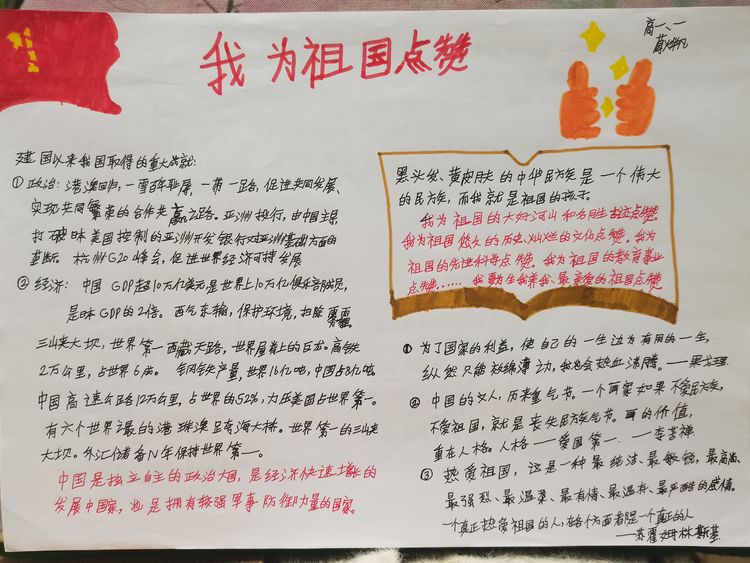 我为祖国点赞
高一、一
建国以来我国取得的重大成就:
①政治:港澳回归,一雪百年耻辱,一带一路,促进共同发展、
实现共同繁荣的合作共赢之路。亚洲投行,由中国主导
打破日本美国控制的亚洲开发银行对亚洲基础方面的
垄断 杭州G20峰会,促进世界经济可持发展
②经济:中国GDP超10万亿美元是世界上10万亿俱乐部成员,
是日本GDP的2倍。西气东输,保护环境,扫除雾霾
三山夹大坝,世界第一西藏天路,世界屋脊上的巨龙。高铁
2万公里,占世界6成。 钢铁产量,世界16亿吨,中国占8亿吨
中国高速公路12万公里,占世界的52%,力压美国占世界第一。
有六个世界之最的港珠澳足夸海大桥。世界第一的三山夹
大坝。外汇储备N年保持世界第一。
中国是独立自主的政治大国,是经济快速增长的
发展中国家,也是拥有较强军事防御力量的国家。
黑头发、黄皮肤的中华民族是一个伟大
的民族,而我就是祖国的孩子。
我为祖国的大好河山和名胜古迹点赞。
我为祖国悠久的历史、灿烂的文化点赞。我为
祖国的先进科学点赞。我为祖国的教育事业
点赞……我要为生我养我、最亲爱的祖国点赞
①为了国家的利益,使自己的一生边为有用的一生,
纵然只能效绵薄之力,我也会热血沸腾。——果戈理
②中国的文人,历来重气节。一个画家如果不爱民族,
不爱祖国,就是丧失民族气节。画的价值,
重在人格。人格——爱国第一。——李苦禅
③热爱祖国,这是一种最纯洁、最敏锐、最高尚、
最强烈、最温柔、最有情、最温存、最严酷的感情。
一个真正热爱祖国的人,在各个方面都是一个真正的人
——苏霍姆林斯基